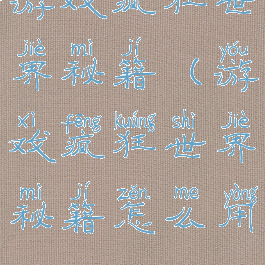 游戏疯狂世
jiè mì jí yóu
界秘籍（游
xì fēng kuáng shì jiè
戏疯狂世界
mì jí zěn me yòng
秘籍怎么用